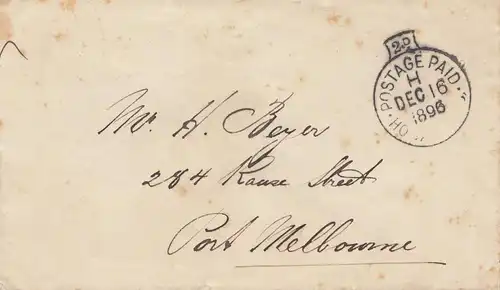 2D
POSTAGE PAID.
H
DEC 16
1896
HO
Mr. H. Beyer
284 Rouse Street
Port Melbourne